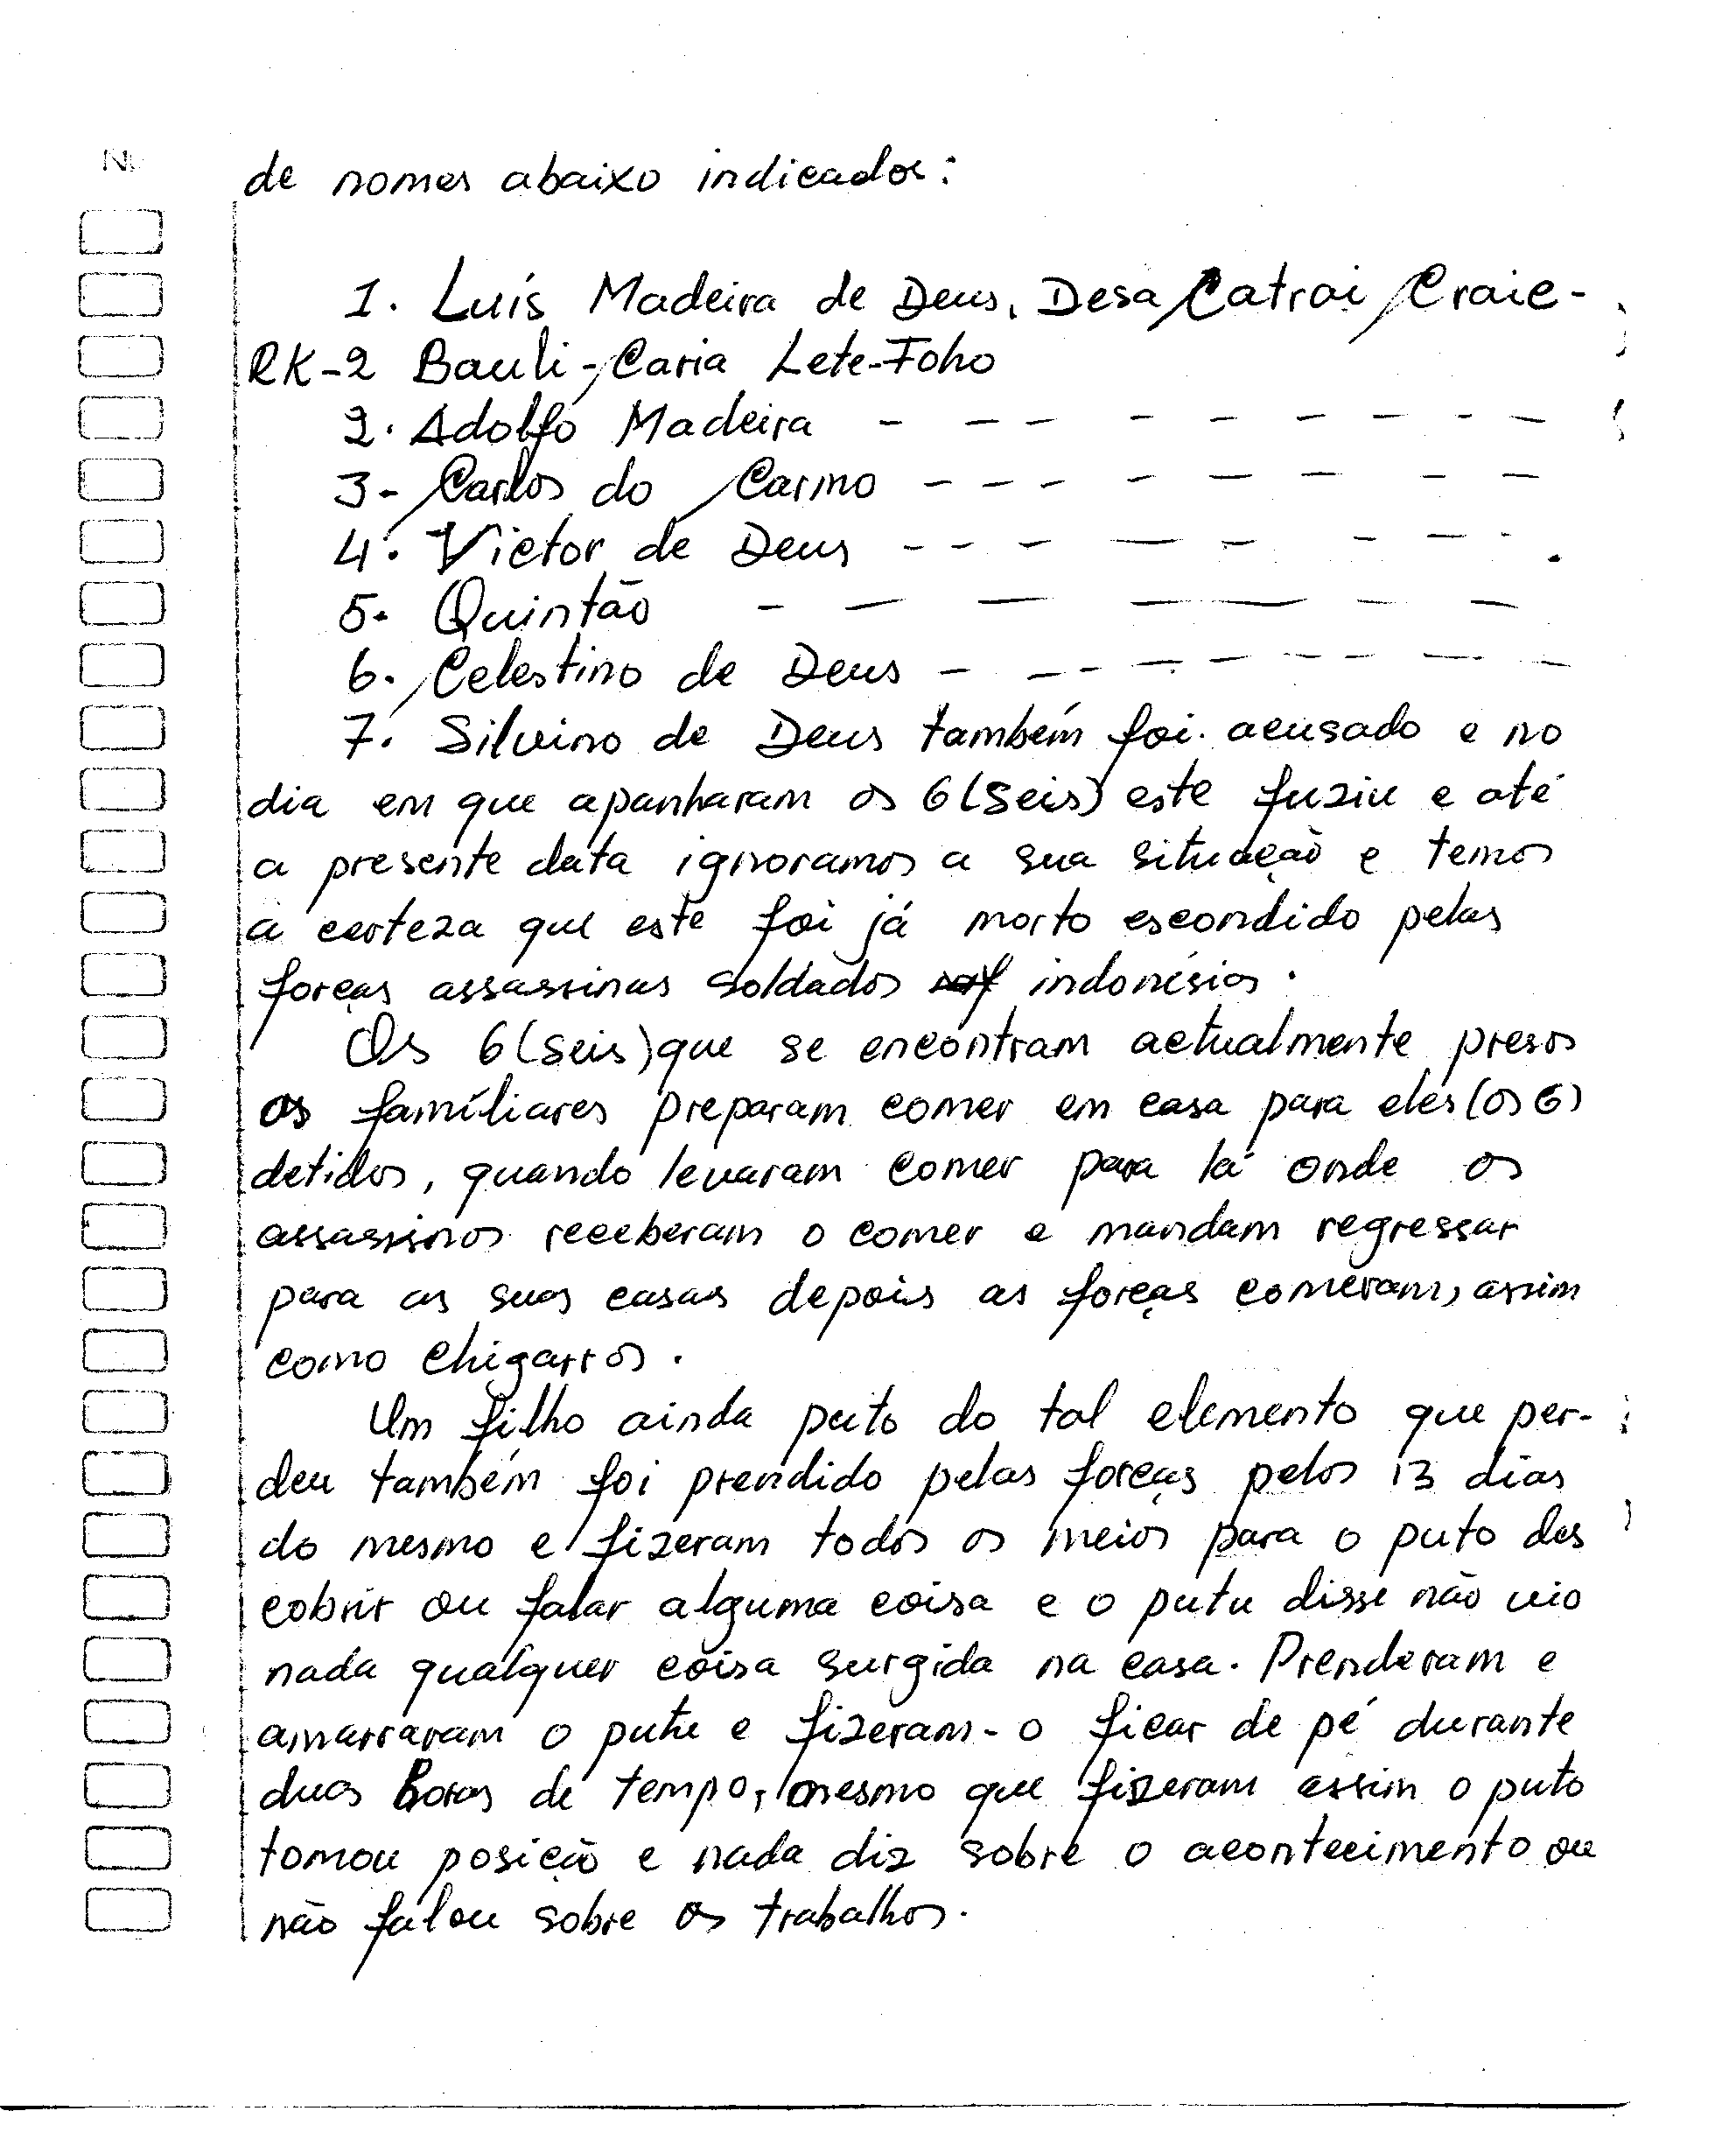 Nº
de nomes abaixo indicados:
1. Luís Madeira de Deus, Desa Catrai Craic-
RK-2 Bauli-Caria Lete-Foho
2. Adolfo Madeira - - - - - - - - -
3- Carlos do Carmo - - - - - - - -
4. Victor de Deus - - - - - - - - .
5. Quintão - - - - - - -
6. Celestino de Deus - - - - - - - - -
7. Silvino de Deus também foi. acusado e no
dia em que apanharam os 6 (seis) este fuziu e até
a presente data ignoramos a sua situação e temos
a certeza que este foi já morto escondido pelas
forças assassinas soldados indonésios.
Os 6 (seis) que se encontram actualmente presos
os famíliares preparam comer em casa para eles (os 6)
detidos, quando levaram comer para lá onde os
assassinos receberam o comer e mandam regressar
para as suas casas depois as forças comeram, assim
como chigarros.
Um filho ainda puto do tal elemento que per-
deu também foi prendido pelas forças pelos 13 dias
do mesmo e fizeram todos os meios para o puto des
cobrir ou falar alguma coisa e o putu disse não vio
nada qualquer coisa surgida na casa. Prenderam e
amarraram o putu e fizeram-o ficar de pé durante
duas horas de tempo, mesmo que fizeram assim o puto
tomou posição e nada diz sobre o acontecimento ou
não falou sobre os trabalhos.